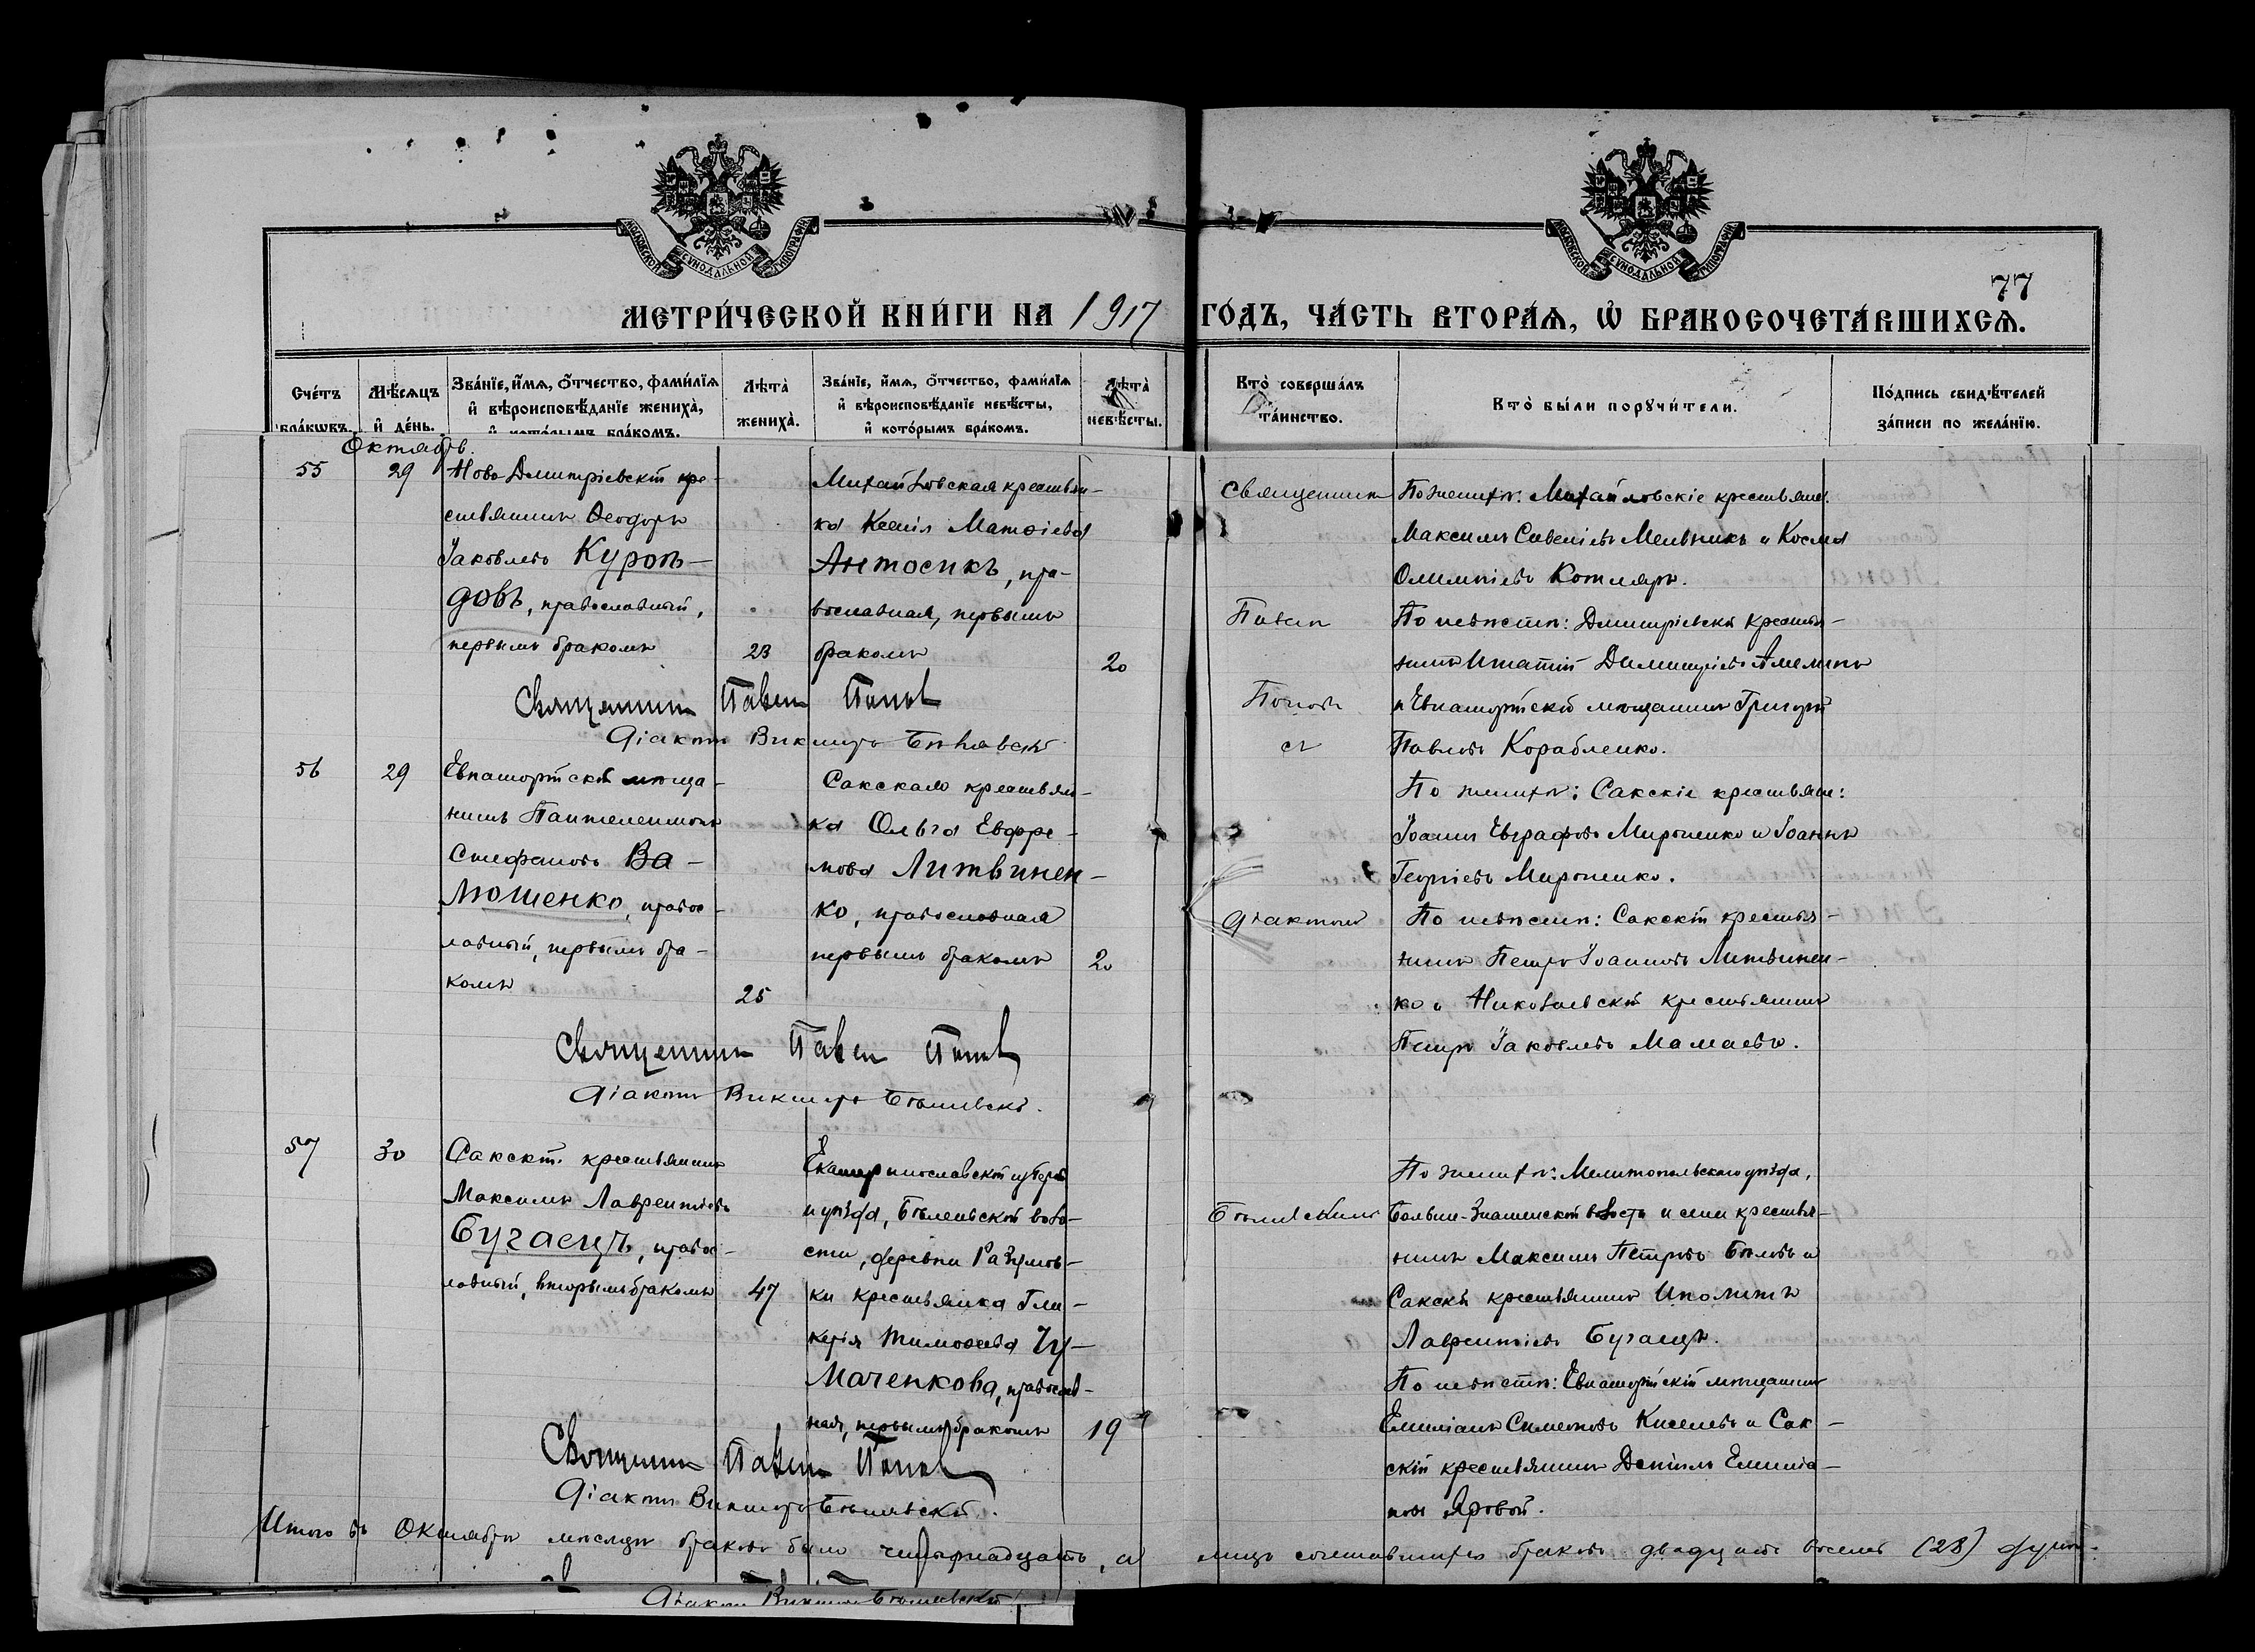 77
МЕТРИ́ЧЕСКОЙ КНИ́ГИ НА 1917 ГО́ДЪ, ЧА́СТЬ ВТОРА́Я, Ѡ БРАКОСОЧЕТА́ВШИХСЯ.
МОСКОВСКОЙ СѴНОДАЛЬНОЙ ТИПОГРАФІИ
МОСКОВСКОЙ СѴНОДАЛЬНОЙ ТИПОГРАФІИ
Сче́тъ бра́кѡвъ.
Мѣ́сяцъ и де́нь.
Зва́нїе, и́мя, о́тчество, фами́лїя
и вѣроисповѣ́данїе жениха̀,
и кото́рымъ бра́комъ.
Лѣта̀
жениха̀.
Зва́нїе, и́мя, о́тчество, фами́лїя
и вѣроисповѣ́данїе невѣ́сты,
и кото́рымъ бра́комъ.
Лѣта̀
невѣ́сты.
Кто̀ соверша́лъ
та́инство.
Кто̀ бы́ли порꙋчи́тели.
По́дпись свидѣ́телей
за́писи по жела́нїю.
Октябрь.
55
29
Ново-Дмитріевскій кре-
стьянинъ Ѳеодоръ
Іаковлевъ Куроѣ-
довъ, православный,
первымъ бракомъ
23
Михайловская крестьян-
ка Ксенія Матѳіева
Антосикъ, пра-
вославная, первымъ
бракомъ
20
Священникъ
Павелъ
Поповъ
съ
По женихѣ: Михайловскіе крестьяне:
Максимъ Савеліевъ Мельникъ и Косма
Олимпіевъ Котляръ.
По невѣстѣ: Дмитріевскій крестья-
нинъ Игнатій Димитріевъ
и Евпаторійскій мѣщанинъ Григорій
Павловъ Корабленко.
Священникъ Павелъ Поповъ
Діаконъ Викторъ Бѣлявскій
56
29
Евпаторійскій мѣща-
нинъ Пантелеимонъ
Стефановъ Ва-
люшенко, правос-
лавный, первымъ бра-
комъ
25
Сакская крестьян-
ка Ольга Евфре-
мова Литвинен-
ко, православная
первымъ бракомъ
20
діакономъ
По женихѣ: Сакскіе крестьяне:
Іоаннъ Евграфовъ Мироненко и Іоаннъ
Георгіевъ Мироненко.
По невѣстѣ: Сакскій крестья-
нинъ Петръ Іоанновъ Литвинен-
ко и Николаевскій крестьянинъ
Петръ Іаковлевъ Мамаевъ.
Священникъ Павелъ Поповъ
Діаконъ Викторъ Бѣлявскій.
57
30
Сакскій крестьянинъ
Максимъ Лаврентіевъ
Бугаецъ, правос-
лавный, вторымъ бракомъ
47
Екатеринославской губерніи
и уѣзда, Бѣленьской воло-
сти, деревни Разумов-
ки крестьянка Гли-
керія Тимоѳеева Чу-
маченкова, православ-
ная, первымъ бракомъ
19
Бѣлявскимъ
По женихѣ: Мелитопольскаго уѣзда,
Больше-Знаменской волости и села крестья-
нинъ Максимъ Петровъ Бѣловъ и
Сакскій крестьянинъ Иполитъ
Лаврентіевъ Бугаецъ.
По невѣстѣ: Евпаторійскій мѣщанинъ
Емиліанъ Симеоновъ Киселевъ и Сак-
скій крестьянинъ Даніилъ Емиліа-
новъ Яровой.
Священникъ Павелъ Поповъ
Діаконъ Викторъ Бѣлявскій.
Итого въ Октябрѣ мѣсяцѣ браковъ было четырнадцать, а лицъ сочетавшихся бракомъ двадцать восемь (28) душъ.
Діаконъ Викторъ Бѣлявскій